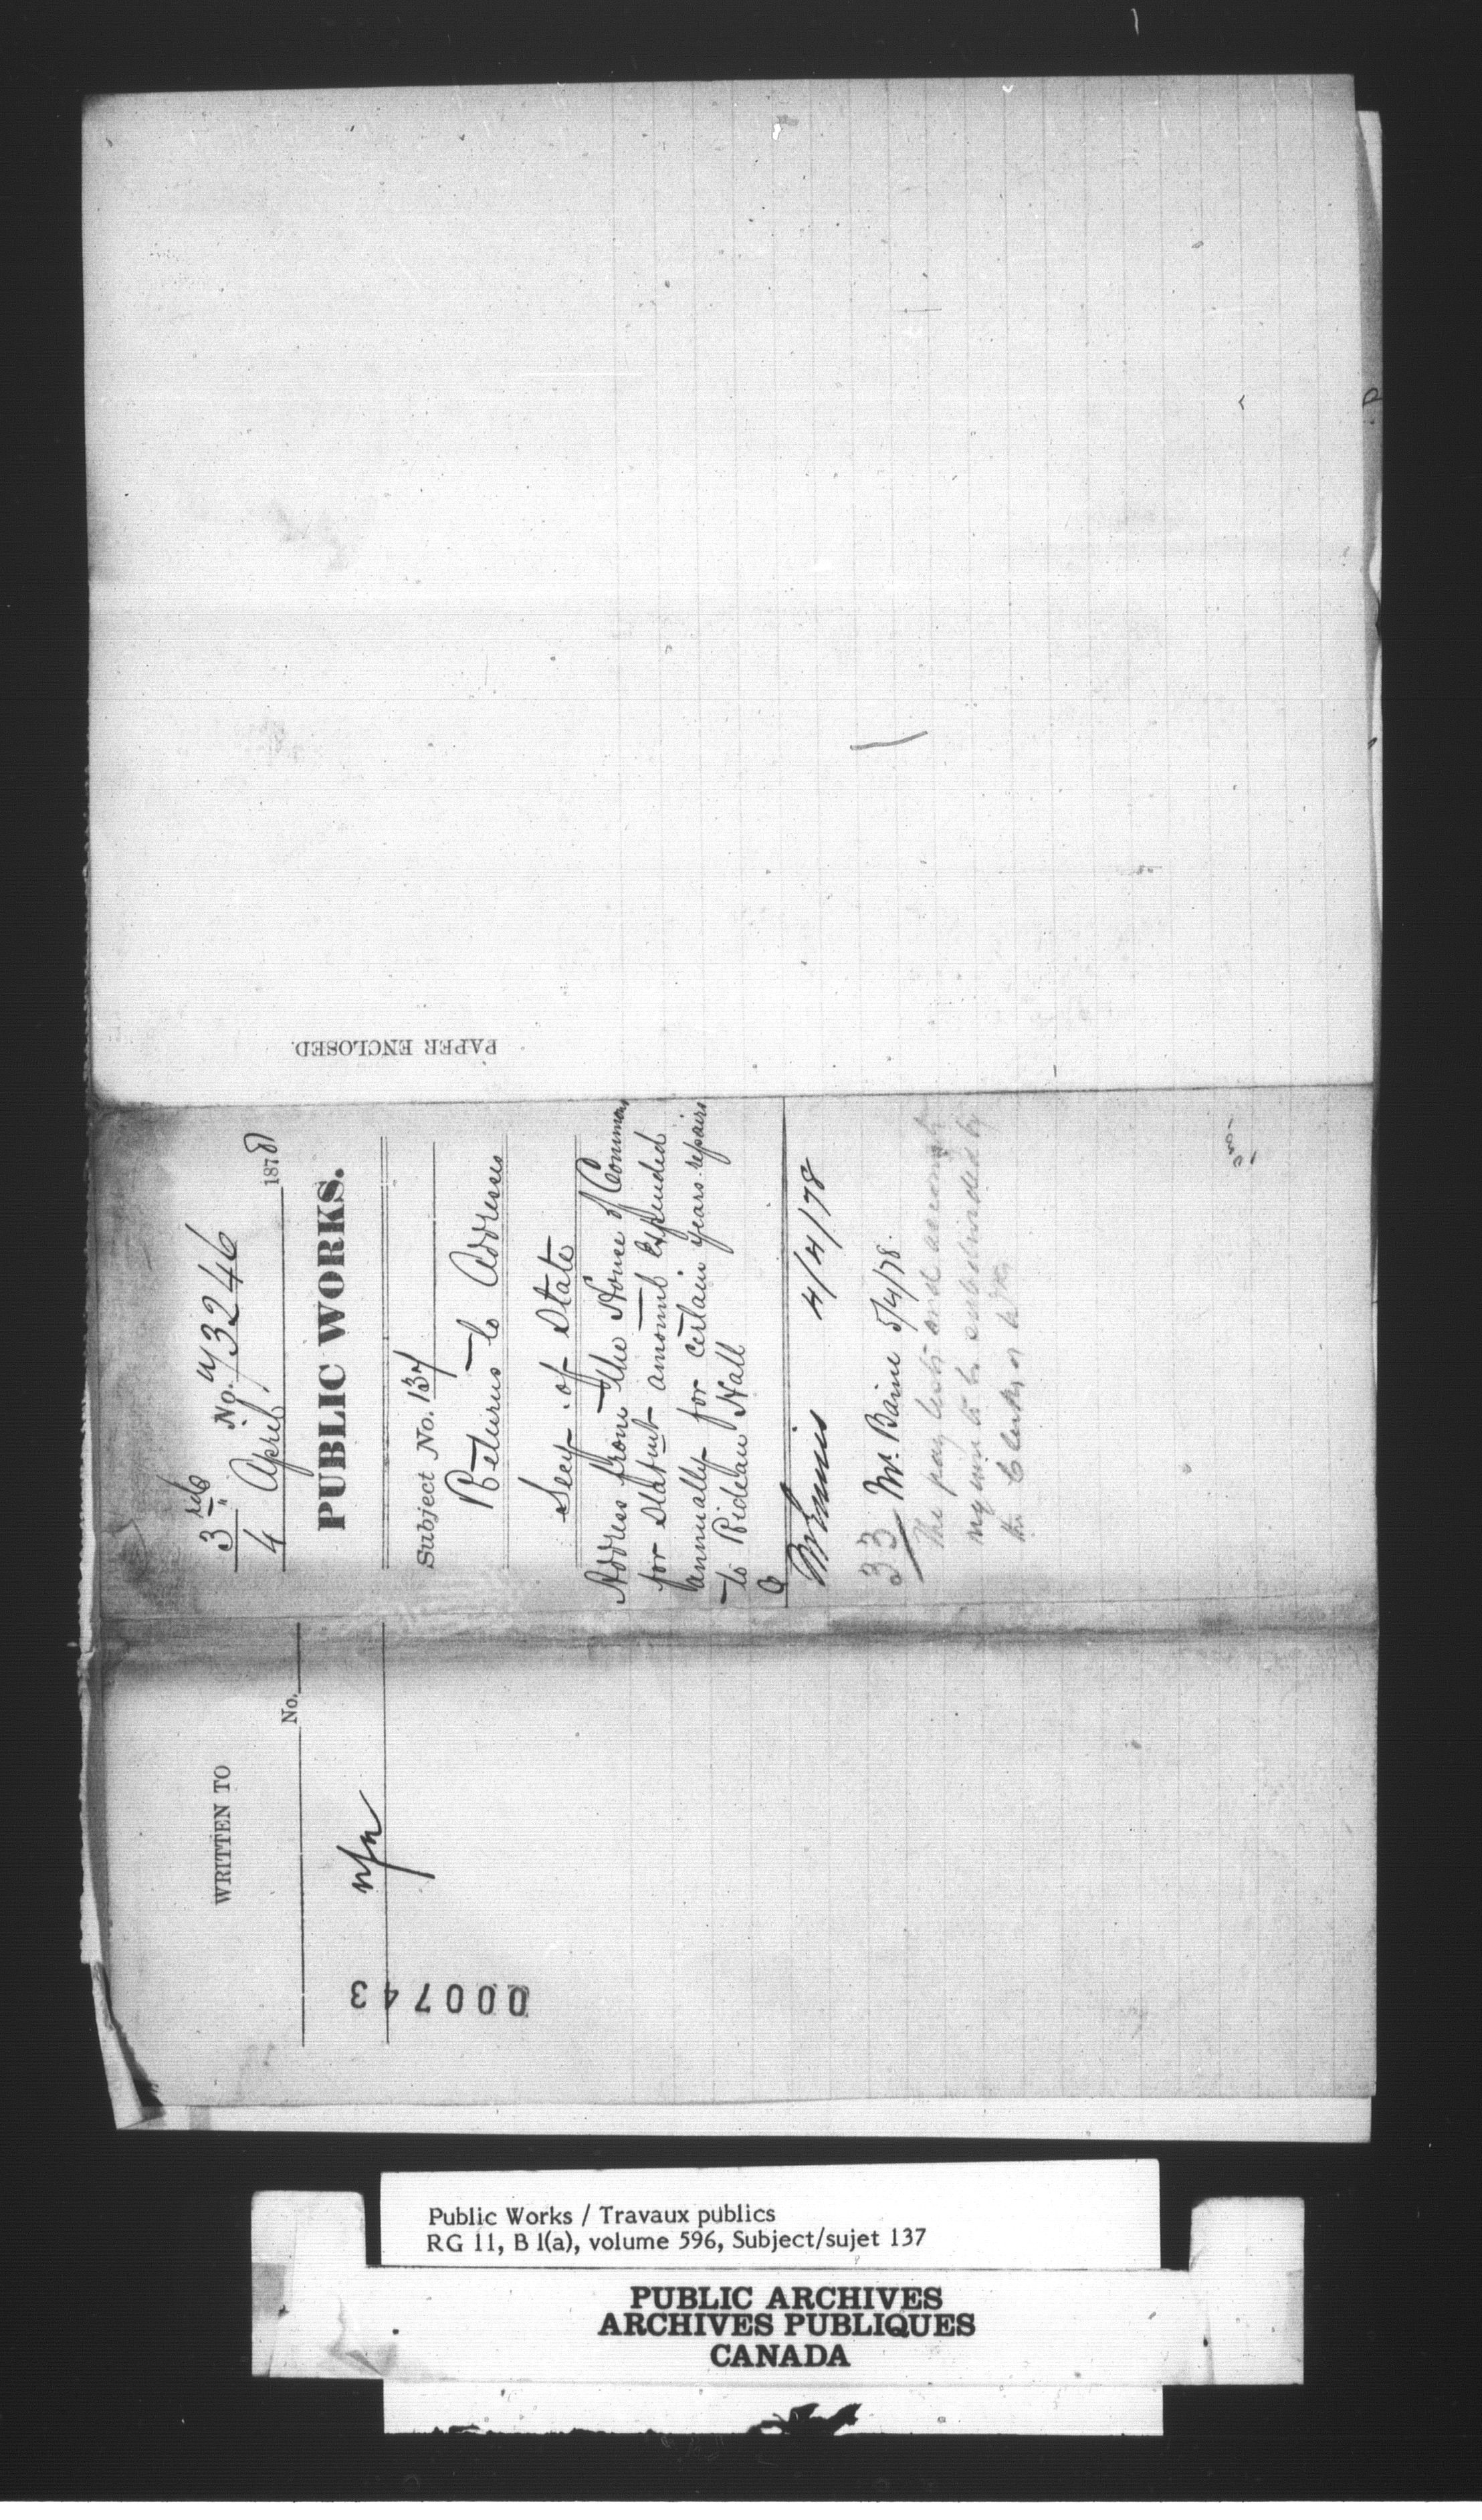 PAPER ENCLOSED.
3rd
No. 73246
4 April 1878
PUBLIC WORKS.
Subject No. 137
Returns to Addresses
Secy. of State
Address from the House of Commons
for Statmt amount Expended
annually for certain years repairs
to Rideau Hall
4/4/78
33 Mr. Baine 5/4/78.
The pay lists and accounts
require to be subdivided by
the Clerk of Wks
WRITTEN TO
No.
000743
Public Works / Travaux publics
RG 11, B 1(a), volume 596, Subject/sujet 137
PUBLIC ARCHIVES
ARCHIVES PUBLIQUES
CANADA